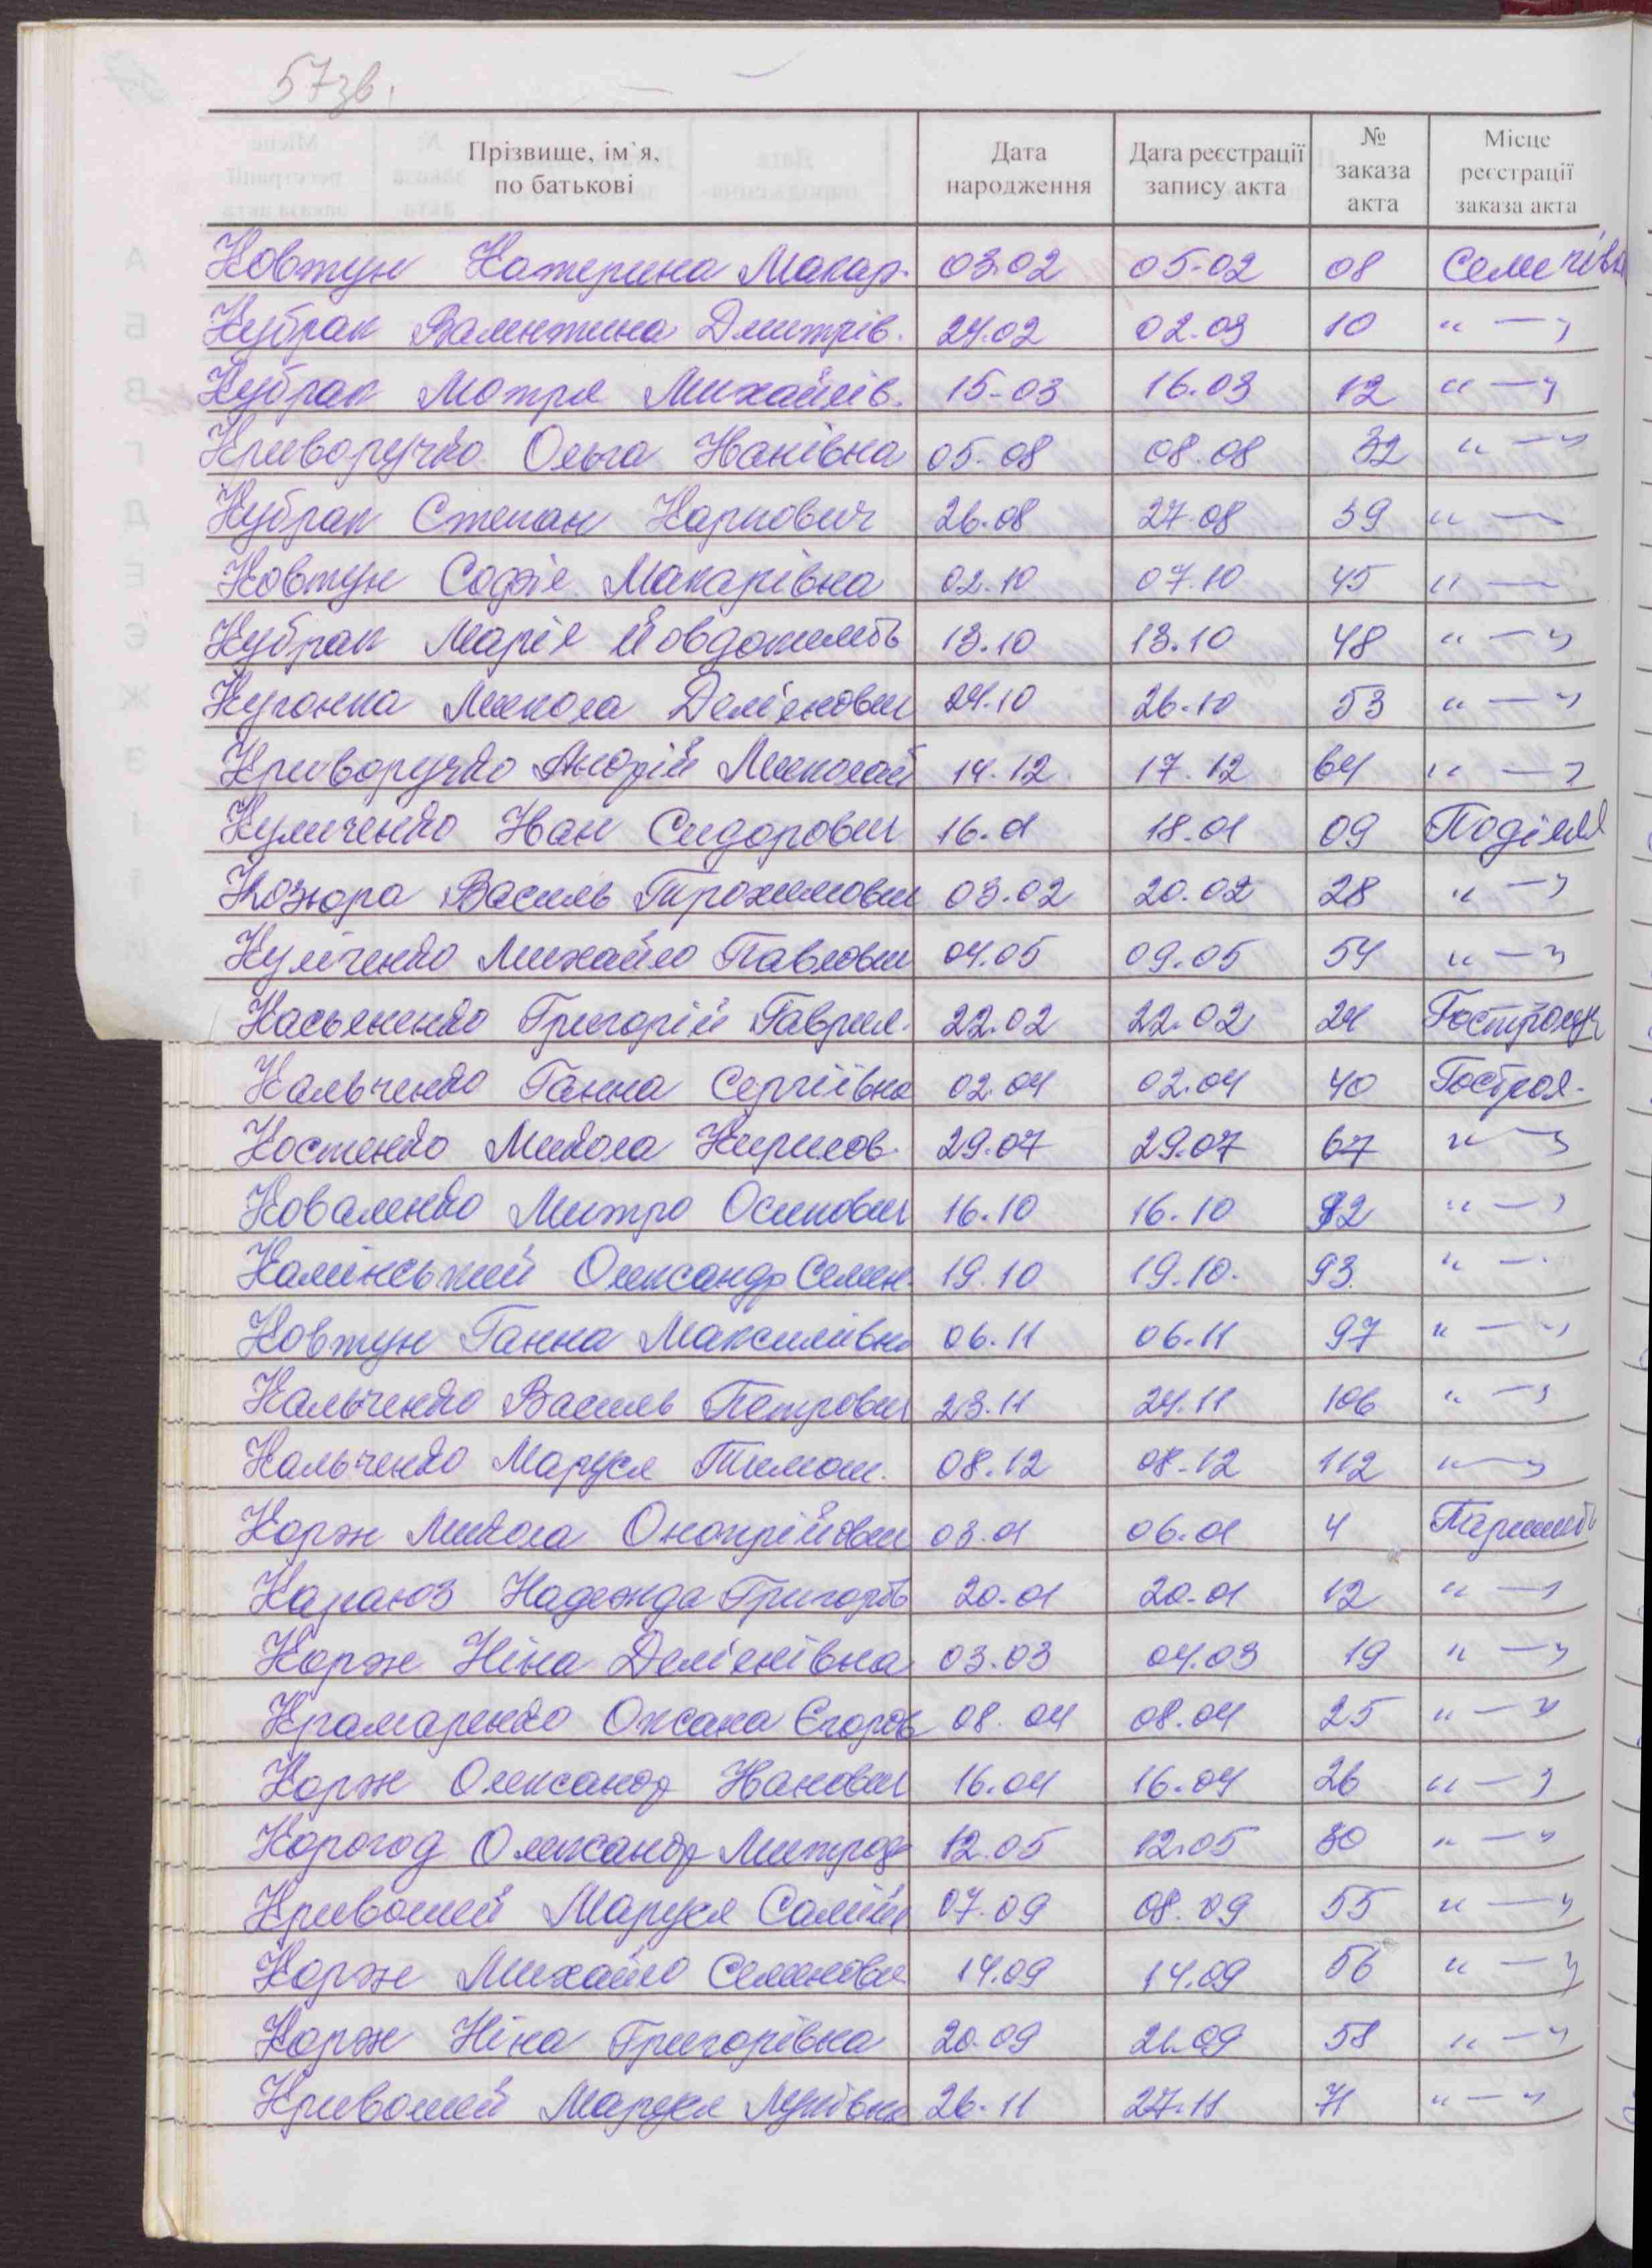 57зв.
Прізвище, ім`я, по батькові Дата народження Дата реєстрації запису акта № заказа акта Місце реєстрації заказа акта
Ковтун Катерина Макар. 03.02 05.02 08 Семенівка
Кубрак Валентина Дмитрів. 24.02 02.03 10 " — "
Кубрак Мотря Михайлів. 15.03 16.03 12 " — "
Криворучко Ольга Іванівна 05.08 08.08 32 " — "
Кубрак Степан Карпович 26.08 27.08 39 " —
Ковтун Софія Макарівна 02.10 07.10 45 " —
Кубрак Марія Йовдокимов 13.10 13.10 48 " — "
Кугонка Микола Дем'янович 24.10 26.10 53 " — "
Криворучко Андрій Миколай 14.12 17.12 64 " — "
Куличенко Іван Сидорович 16.01 18.01 09 Поділля
Козюра Василь Трохимович 03.02 20.02 28 " — "
Куліченко Михайло Павлович 04.05 09.05 54 " — "
Касьяненко Григорій Гаврил. 22.02 22.02 24
Кальченко Ганна Сергіївна 02.04 02.04 40 Гострол.
Костенко Микола Кирилов. 29.07 29.07 67 " — "
Коваленко Митро Осипович 16.10 16.10 92 " — "
Камінський Олександр Семен. 19.10 19.10. 93. " — "
Ковтун Ганна Максимівна 06.11 06.11 97 " — "
Кальченко Василь Петрович 23.11 24.11 106 " — "
Кальченко Маруся Тимош. 08.12 08.12 112 " — "
Корж Микола Онопрійович 03.01 06.01 4
Караюз Надежда Григорів 20.01 20.01 12 " — "
Корж Ніна Дем'янівна 03.03 04.03 19 " — "
Крамаренко Оксана Єгоров 08.04 08.04 25 " — "
Корж Олександр Іванович 16.04 16.04 26 " — "
Корогод Олександр Митроф 12.05 12.05 30 " — "
Кривошей Маруся Самій 07.09 08.09 55 " — "
Корж Михайло Семенович 14.09 14.09 56 " — "
Корж Ніна Григорівна 20.09 21.09 58 " — "
Кривошей Маруся Луківна 26.11 27.11 71 " — "